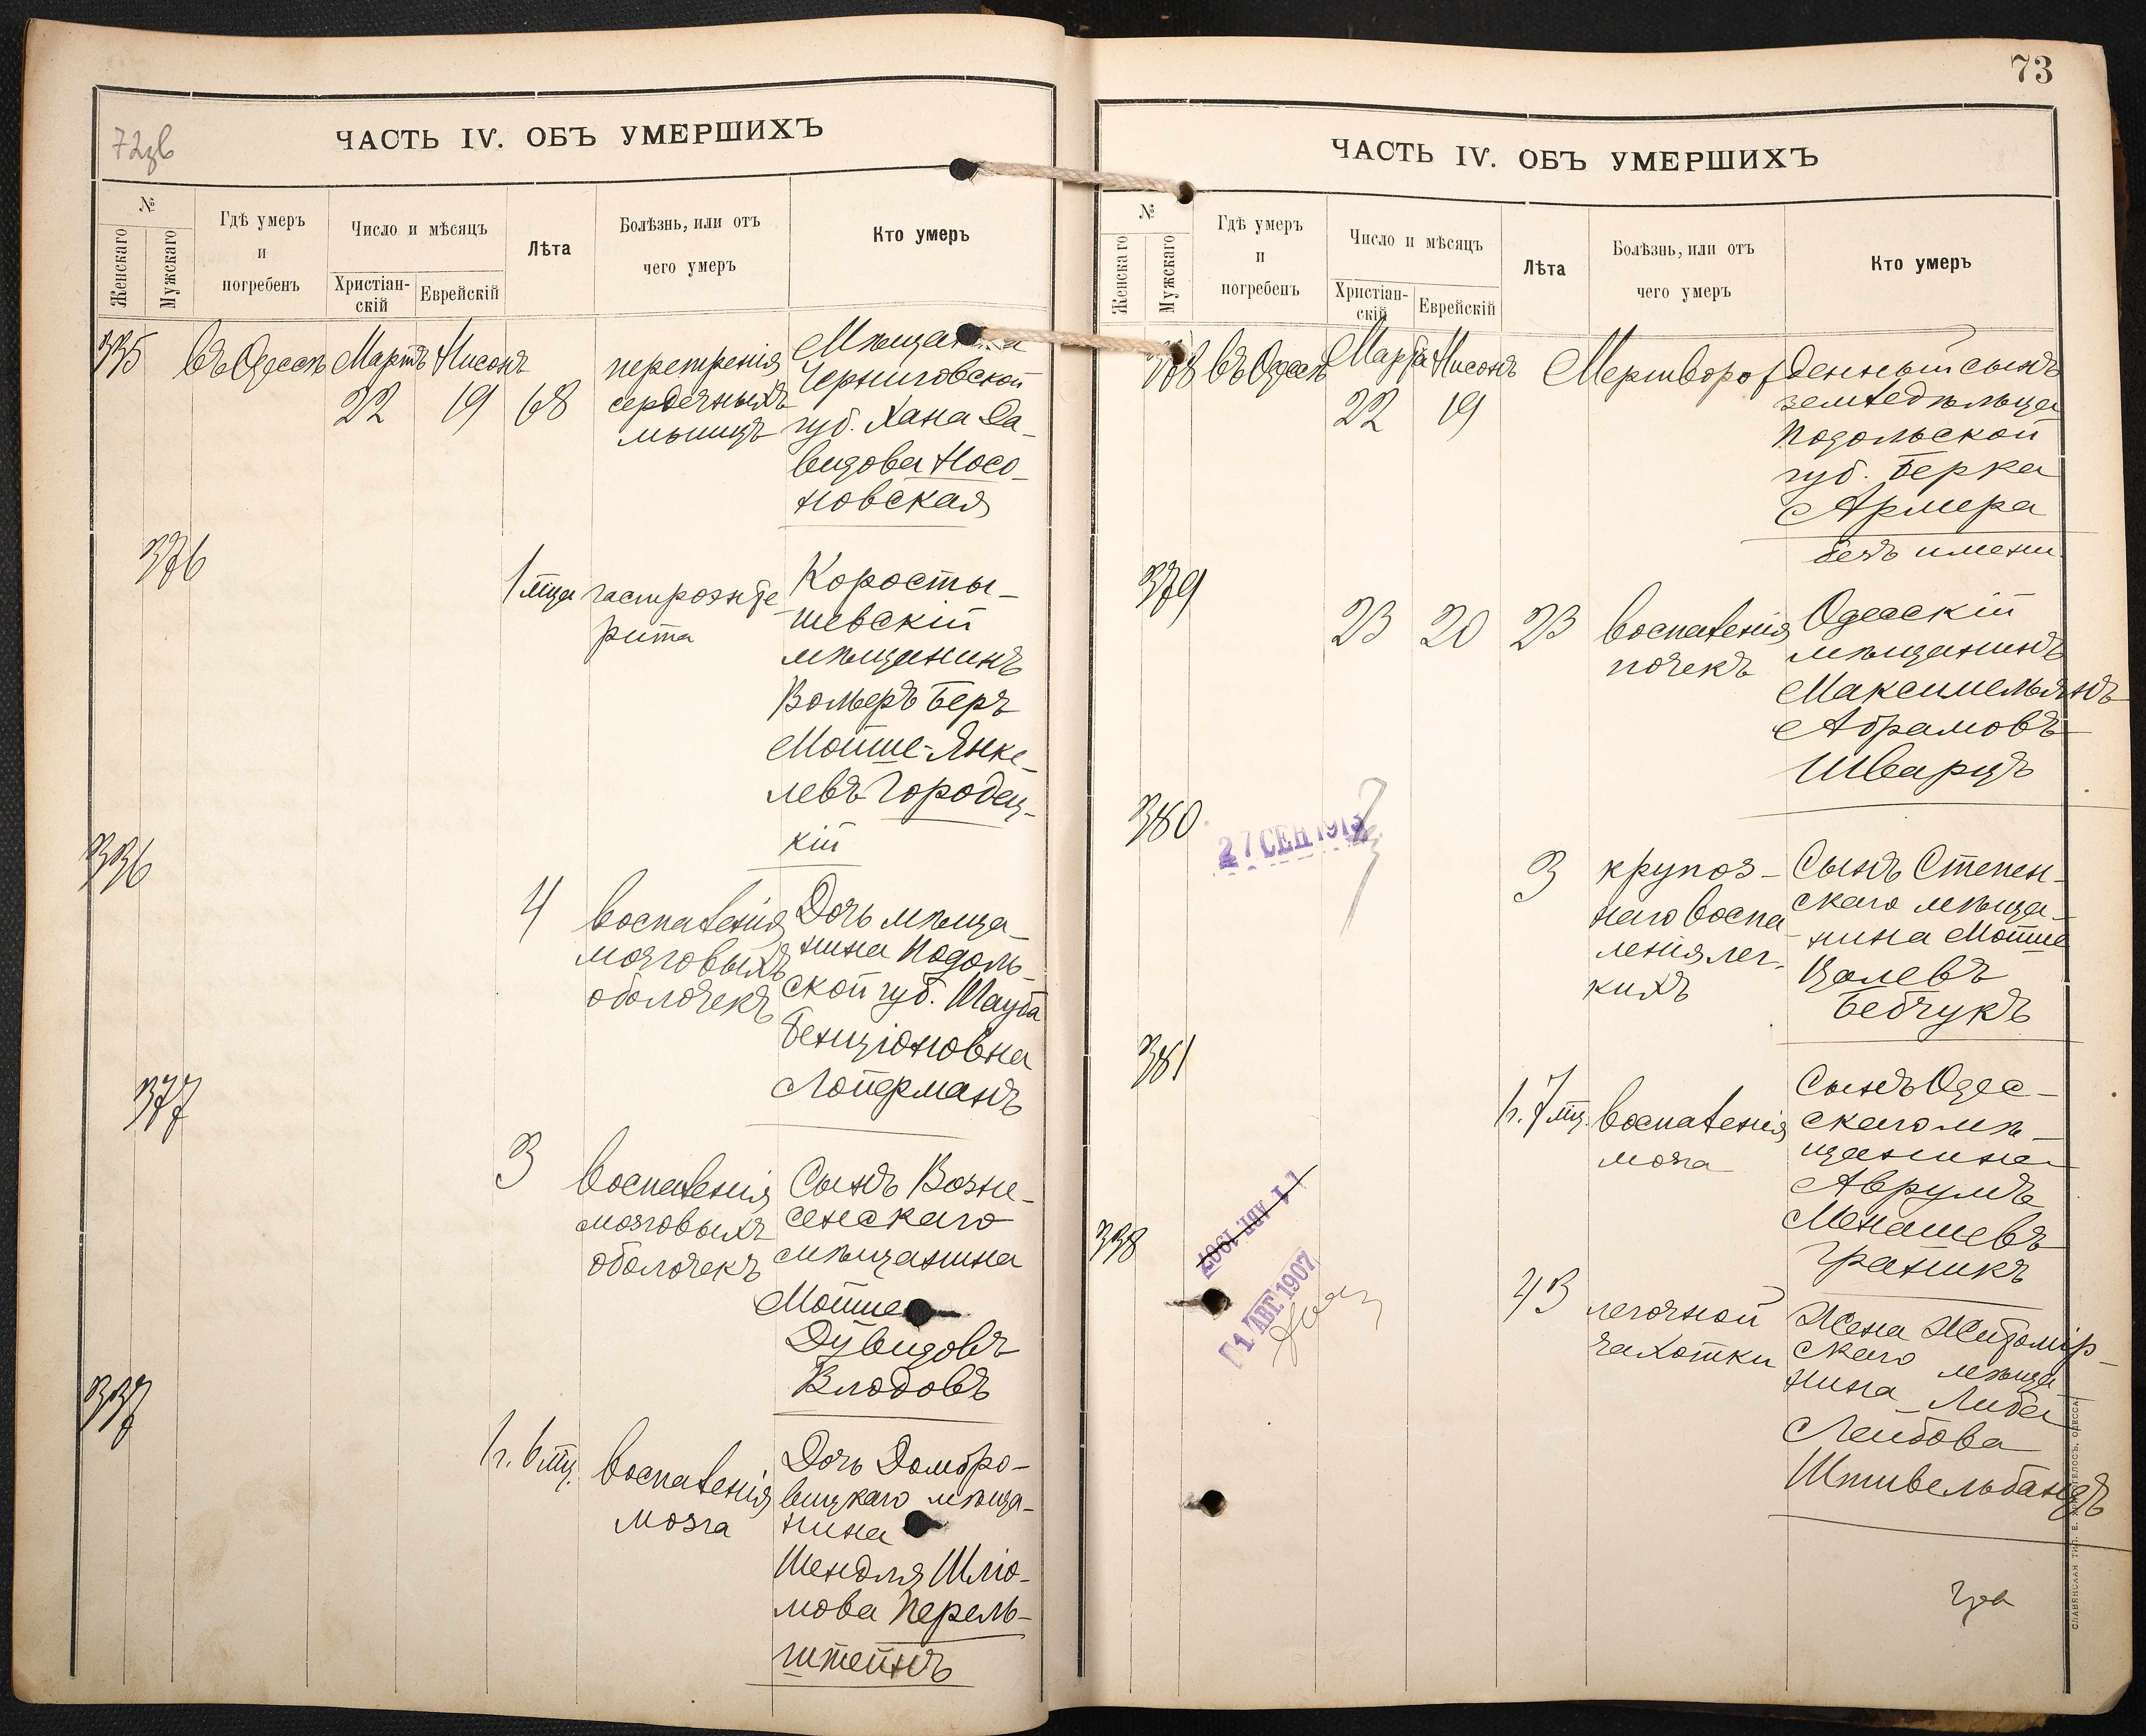 72зв
ЧАСТЬ IV. ОБЪ УМЕРШИХЪ
№
Женскаго
Мужскаго
Гдѣ умеръ
и
погребенъ
Число и мѣсяцъ
Христіан-
скій
Еврейскій
Лѣта
Болѣзнь, или отъ
чего умеръ
Кто умеръ
335 въ Одессѣ Мартъ Нисонъ
22 19 68
перерожденія
сердечныхъ
мышцъ
Мѣщанка
Черниговской
губ. Хана Да-
видова Носо-
новская
376
1 мца гастроэнте
рита
Коросты-
шевскій
мѣщанинъ
Вольфъ Беръ
Мойше-Янке-
левъ Городец-
кій
336
4 воспаленія
мозговыхъ
оболочекъ
Дочь мѣща-
нина Подоль-
ской губ. Тауба
Бенціоновна
Лойферманъ
377
3 воспаленія
мозговыхъ
оболочекъ
Сынъ Возне-
сенскаго
мѣщанина
Мойше
Дувидовъ
Влодовъ
337
1 г. 6 мц. воспаленія
мозга
Дочь Домбро-
вицкаго мѣща-
нина
Шендля Шліо-
мова Перель-
штейнъ
73
ЧАСТЬ IV. ОБЪ УМЕРШИХЪ
№
Женскаго
Мужскаго
Гдѣ умеръ
и
погребенъ
Число и мѣсяцъ
Христіан-
скій
Еврейскій
Лѣта
Болѣзнь, или отъ
чего умеръ
Кто умеръ
378 въ Одессѣ Марта Нисонъ
22 19
Мертворожденный сынъ
земледѣльца
Подольской
губ. Берка
Армера
безъ имени
379
23 20 23 воспаленія
почекъ
Одесскій
мѣщанинъ
Максимельянъ
Абрамовъ
Шварцъ
380
27 СЕН 1913
3 крупоз-
наго воспа-
ленія лег-
кихъ
Сынъ Степен-
скаго мѣща-
нина Мойше
Цалевъ
Бебчукъ
381
1 г. 7 мц. воспаленія
мозга
Сынъ Одес-
скаго мѣ-
щанина
Аврумъ
Менашевъ
Граникъ
338
11 АВГ. 1907
11 АВГ. 1907
43 легочной
чахотки
Жена Житомір-
скаго мѣща-
нина Либа
Лейбова
Штивельбандъ
СЛАВЯНСКАЯ ТИП. Е. ХРИСОГЕЛОСЪ, ОДЕССА